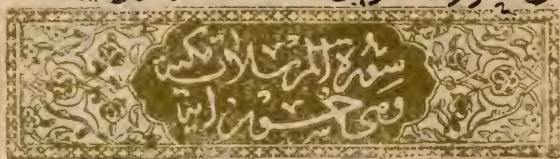 سورة المرسلات مكية
وهى خمسون اية